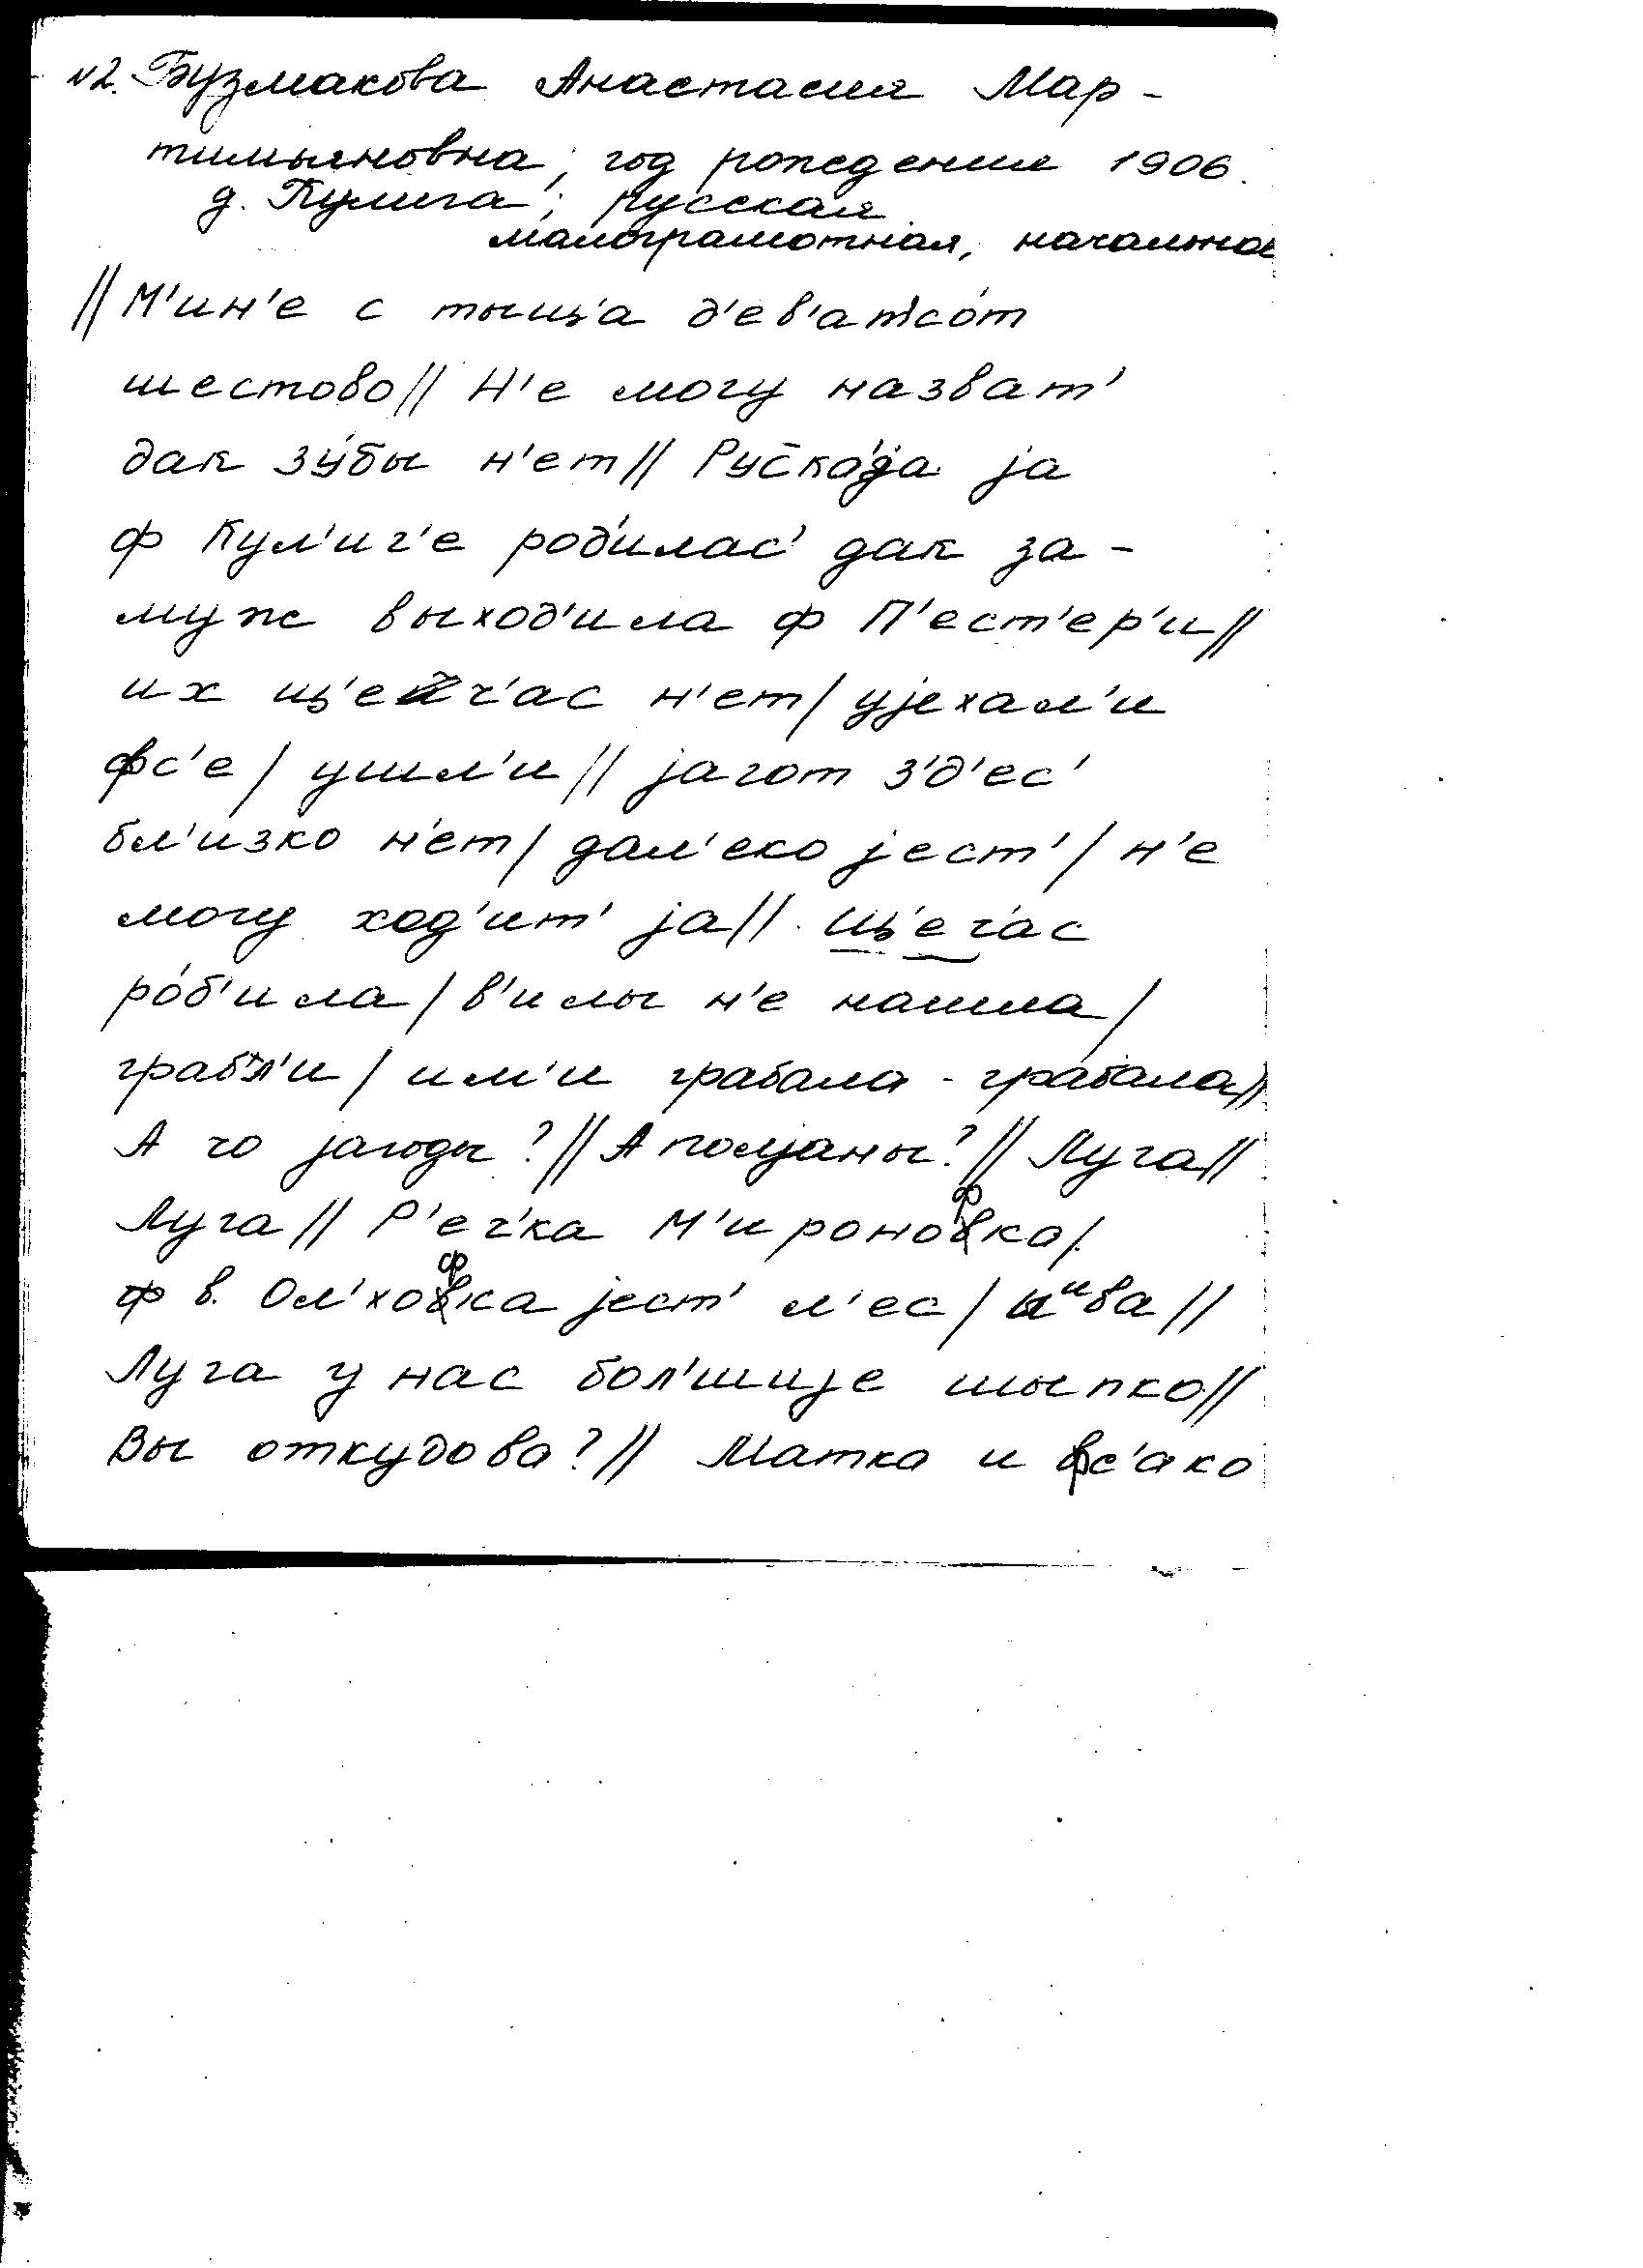 N2. Бузмакова Анастасия Мар-
тимьяновна, год рождения 1906.
д. Кулига; русская
малограмотная, начальная
// М'ин'е с тыщ'а д'ев'атсо́т
шестово // Н'е могу назват'
дак зу́бы н'ет // Рус̄ко́jа jа
ф Кул'иг'е род'илас' дак за-
муж выход'ила ф П'ест'ер'и //
их щ'ейч'ас н'ет / уjехал'и
фс'е / ушл'и // jагот з'д'ес'
бл'изко н'ет / дал'еко jест' / н'е
могу ход'ит' jа // щ'еч'ас
ро́б'ила / в'илы н'е нашла /
грабл'и / им'и грабала - грабала //
А чо jагоды? // А пол'jаны? // Луга //
Луга // Р'еч'ка М'ироно́фка /
в. Ол'хофка jест' л'ес / ива //
Луга у нас бол'шиjе шыпко //
Вы откудова? // Матка и фс'ако